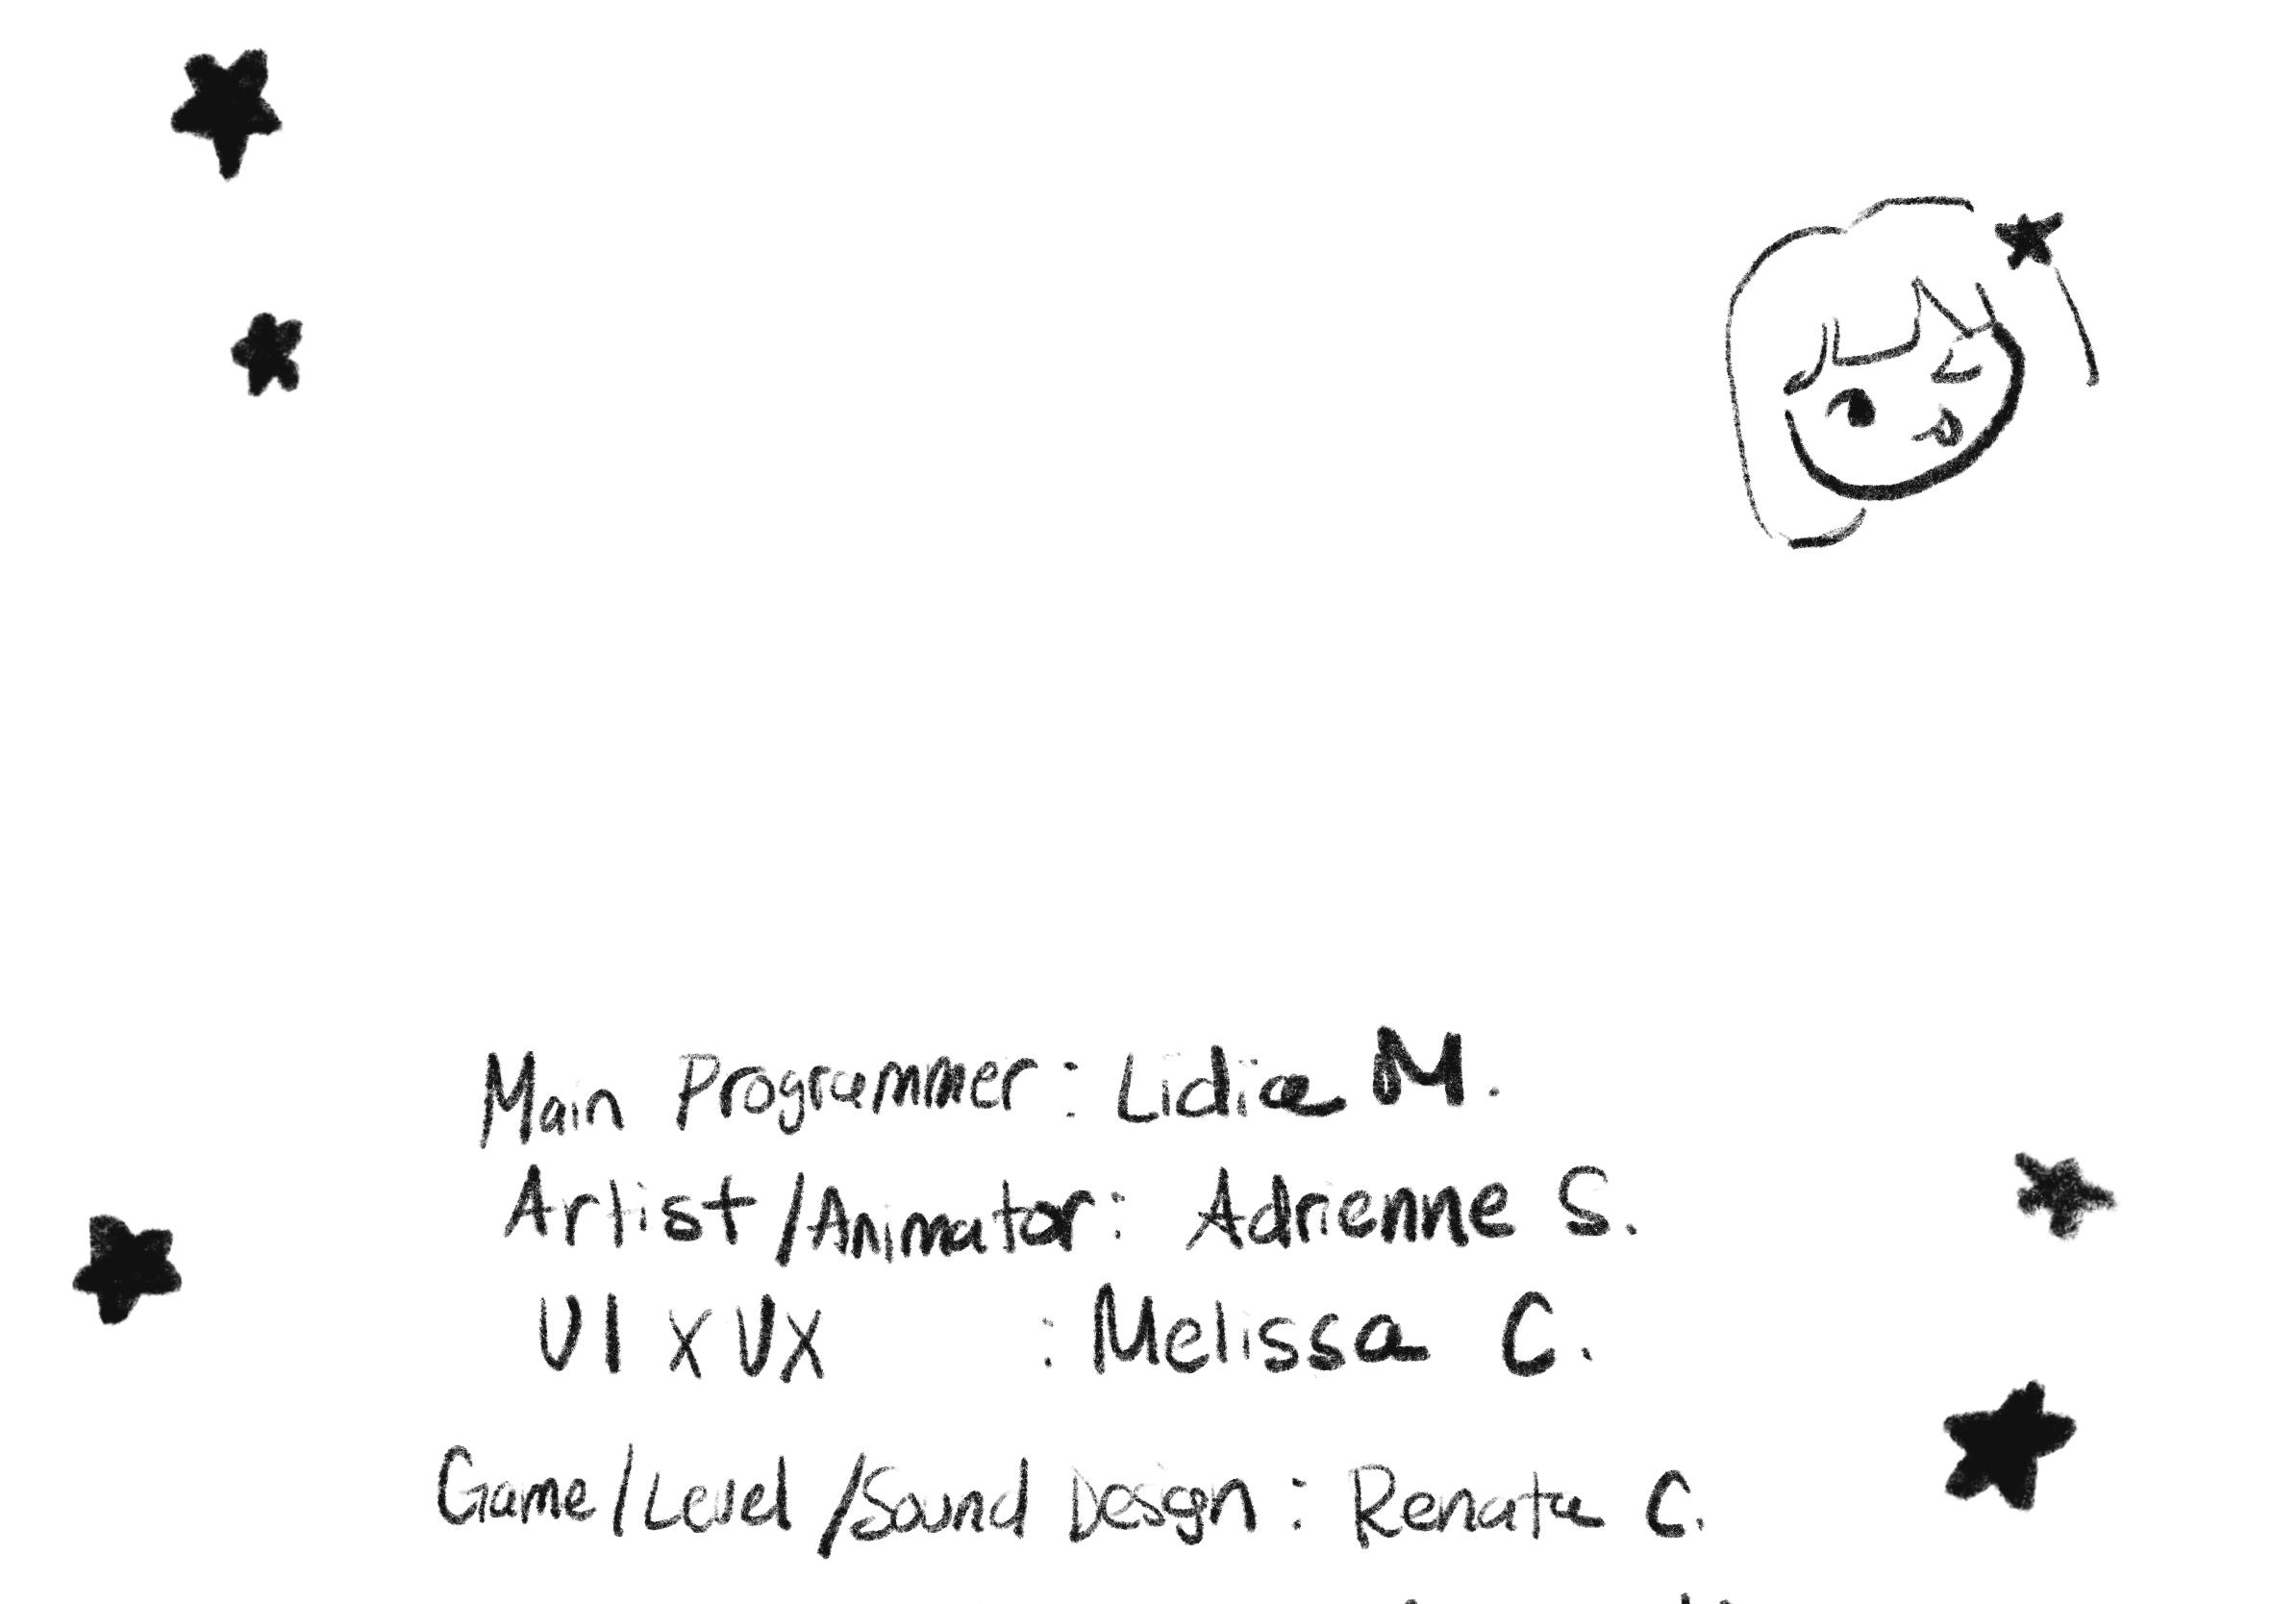 Main Programmer: Lidia M.
Artist/Animator: Adrienne S.
UI x UX : Melissa C.
Game/Level/Sound Design: Renata C.